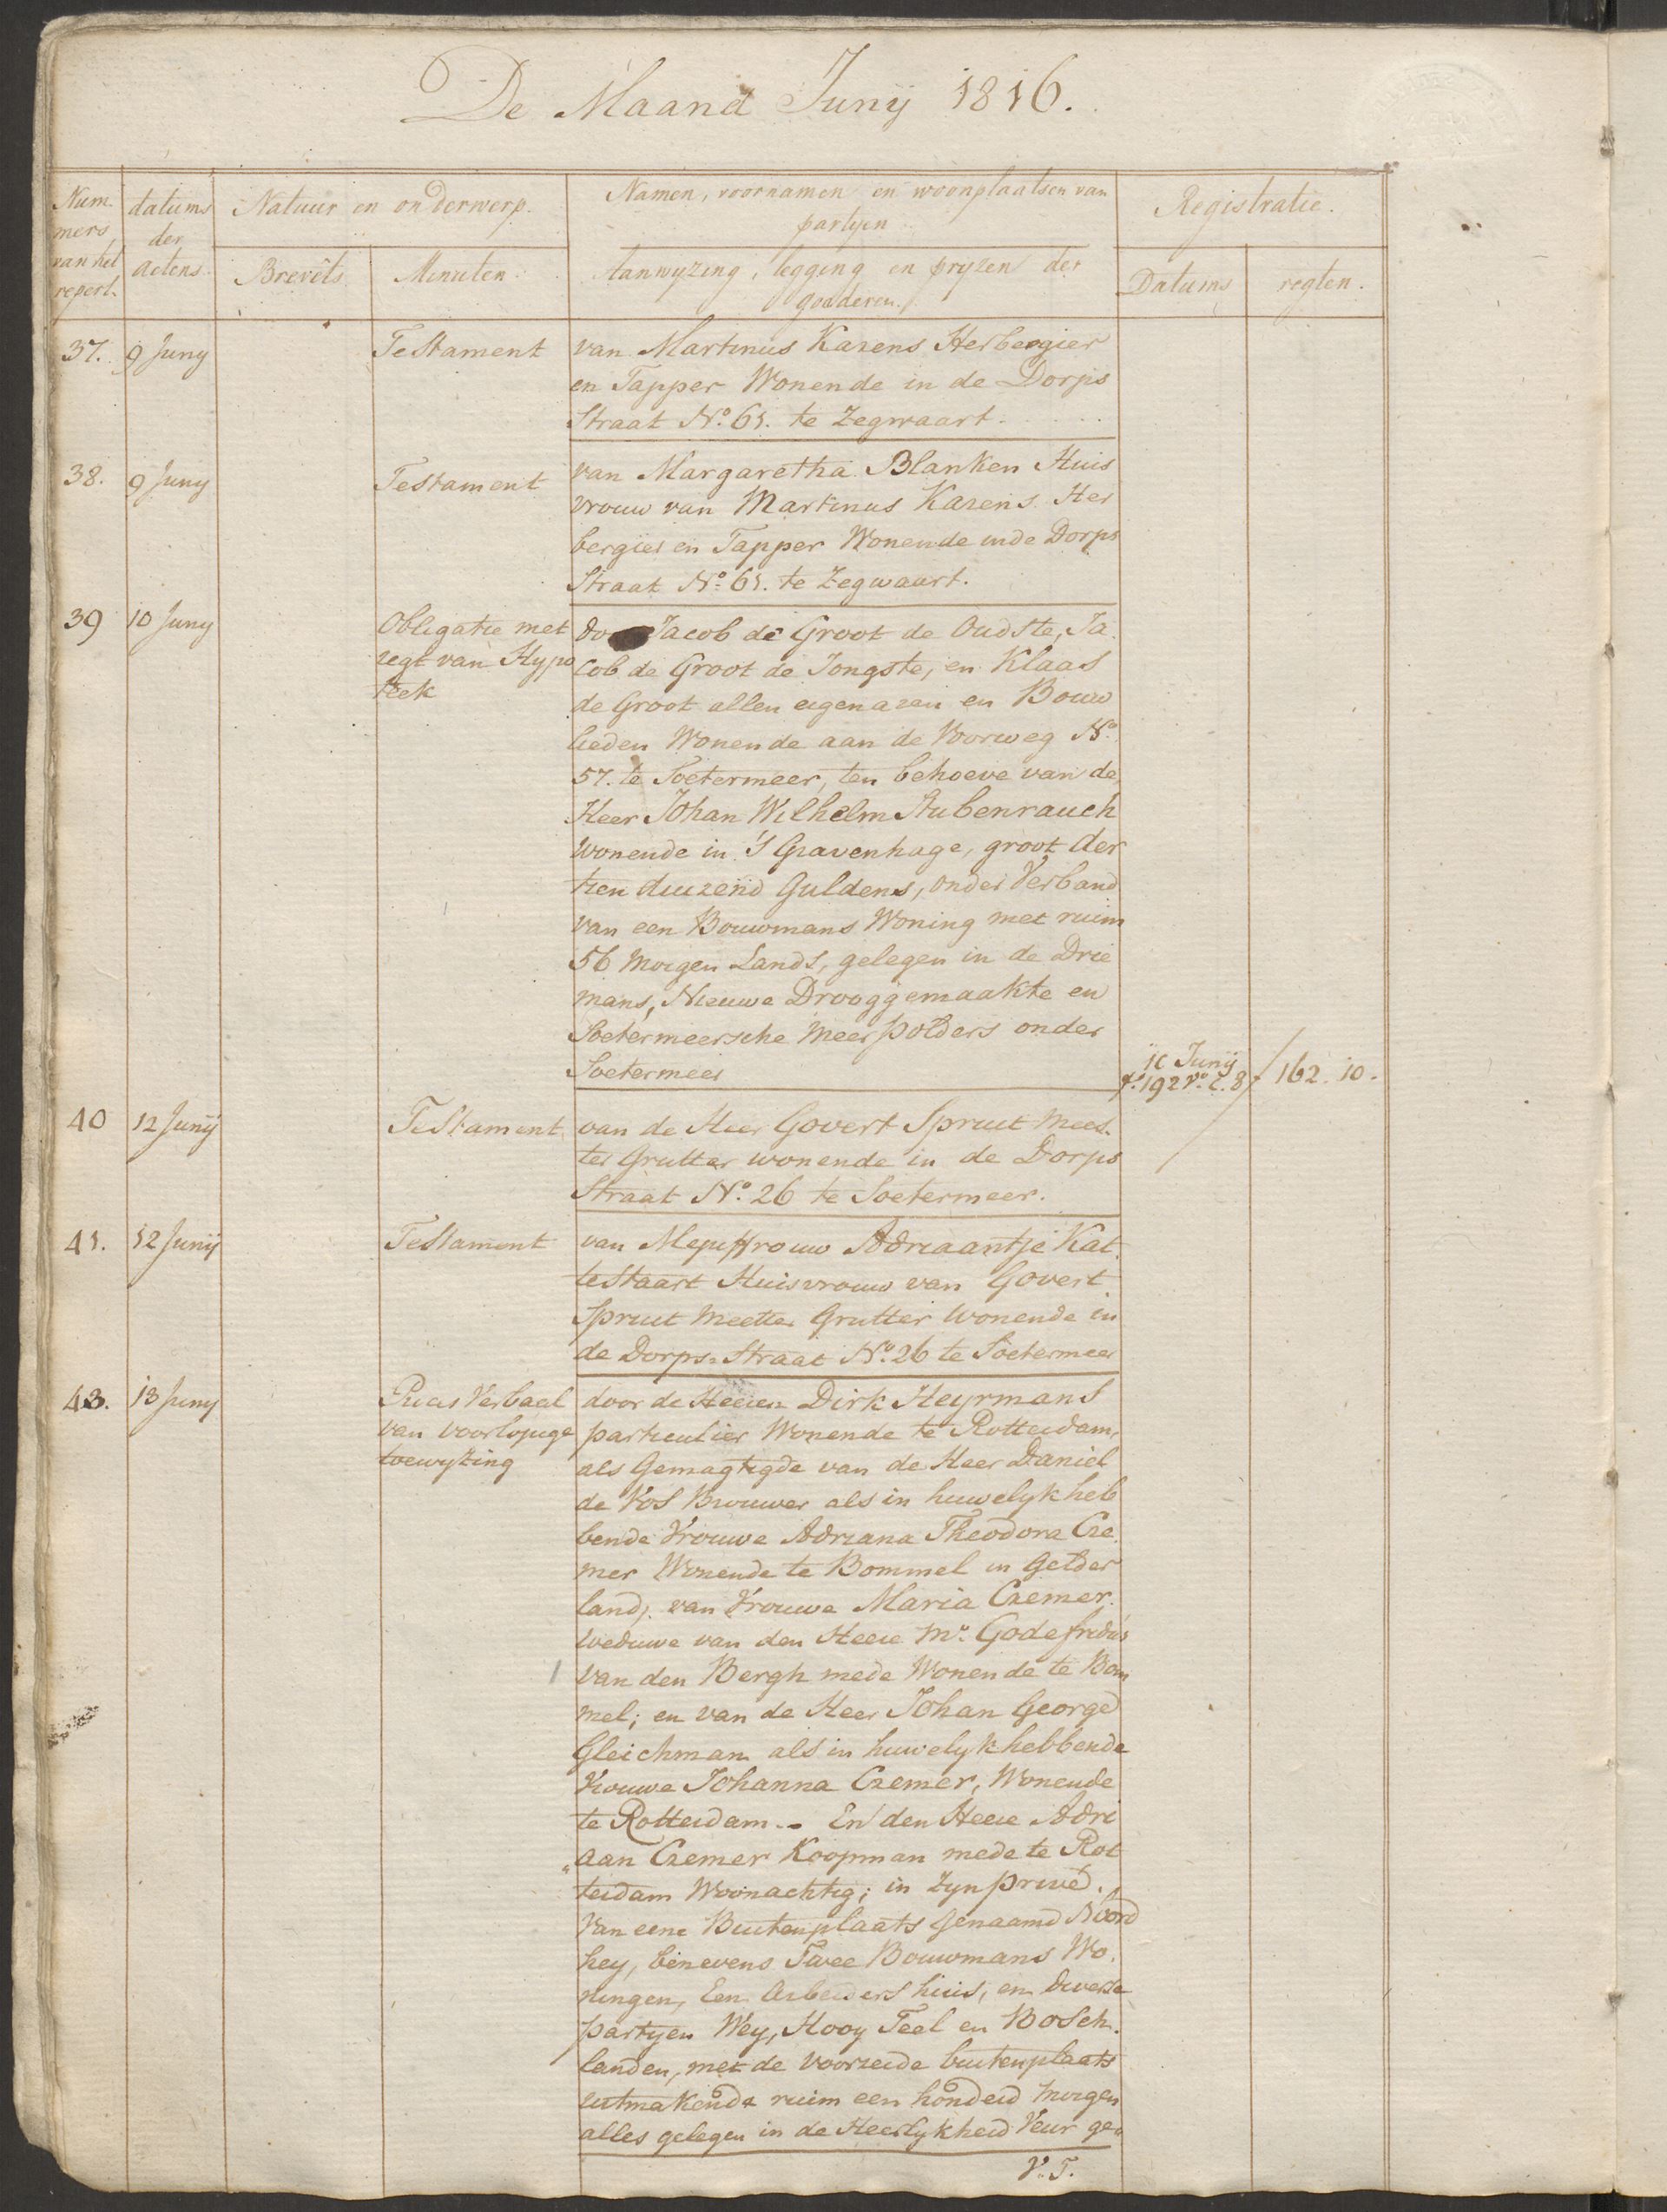 De Maand Junij 1816.
Num
mers
van het
repert.
datums
der
actens
Natuur en onderwerp.
Brevêts
Minuten.
Namen, voornamen en woonplaatsen van
partyen
Aanwyzing, legging en pryzen der
goederen.
Registratie.
Datums
regten.
37. 9 Juny Testament van Martinus Karens Herbergier
en Tapper Wonende in de Dorps
Straat No. 61. te Zegwaart.
38. 9 Juny Testament van Margaretha Blanken Huis
vrouw van Martinus Karens Her
bergier en Tapper Wonende inde Dorps
Straat No. 61. te Zegwaart.
39 10 Juny Obligatie met Jacob de Groot de Oudste, Ja
regt van Hypo cob de Groot de Jongste, en Klaas
teek de Groot allen eigenaren en Bouw
lieden Wonende aan de Voorweg No.
57. te Soetermeer, ten behoeve van de
Heer Johan Wilhelm Stubenrauch
Wonende in 's Gravenhage, groot der
tien duizend Guldens, onder Verband
van een Bouwmans Woning met ruim
56 Morgen Lands, gelegen in de Drie
mans, Nieuwe Drooggemaakte en
Soetermeersche Meerpolders onder
Soetermeer 10 Junij
fo. 192 vo. C. 8 162. 10.
40 12 Junij Testament van de Heer Govert Spruit Mees
ter Grutter wonende in de Dorps
Straat No. 26 te Soetermeer.
41. 12 Junij Testament van Mejuffrouw Adriaantje Kat
testaart Huisvrouw van Govert
Spruit Meester Grutter Wonende in
de Dorps-Straat No. 26 te Soetermeer
43. 13 Juny Proces Verbaal door de Heeren Dirk Heyrmans
van voorlopige particulier Wonende te Rotterdam,
toewyzing als Gemagtigde van de Heer Daniel
de Vos Brouwer als in huwelyk heb
bende Vrouwe Adriana Theodora Cre
mer Wonende te Bommel in Gelder
land; van Vrouwe Maria Cremer
Weduwe van den Heere Mr. Godefridus
van den Bergh mede Wonende te Bom
mel; en van de Heer Johan George
Gleichman als in huwelyk hebbende
Vrouwe Johanna Cremer, Wonende
te Rotterdam. - En den Heere Adri
aan Cremer Koopman mede te Rot
terdam Woonachtig; in Zyn privé.
Van eene Buitenplaats Genaamd Noord
hey, benevens Twee Bouwmans Wo
ningen, Een Arbeiders huis, en diverse
partyen Wey, Hooy Teel en Bosch
landen, met de voorzeide buitenplaats
uitmakende ruim een honderd morgen
alles gelegen in de Heerlykheid Veur ge
V. T.